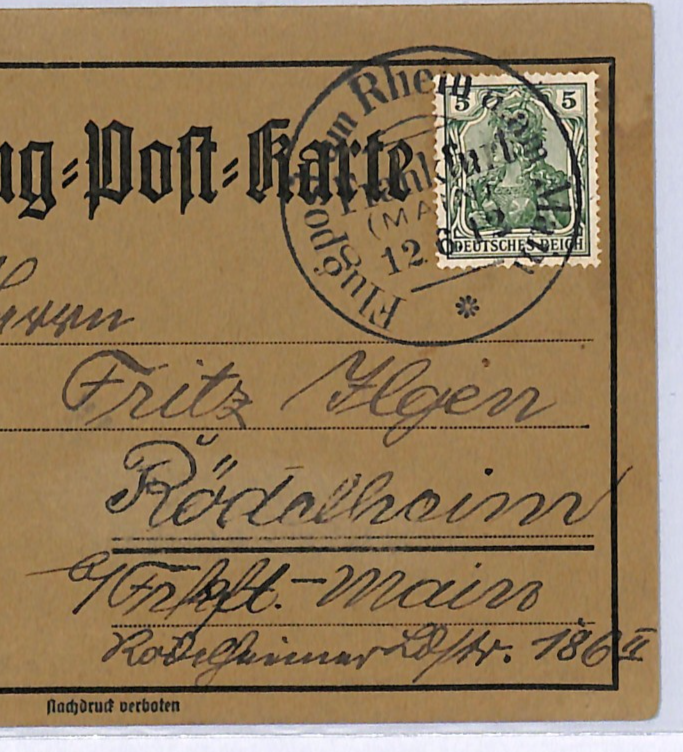 Flugpost am Rhein u. am Main
Frankfurt
(MAIN)
12.6.12
5 5
DEUTSCHES REICH
ug-Post-Karte
Herrn
Fritz Ilgen
Rödelheim
b/Frkft.-Main
Rödelheimer Ldstr. 186 II
Nachdruck verboten